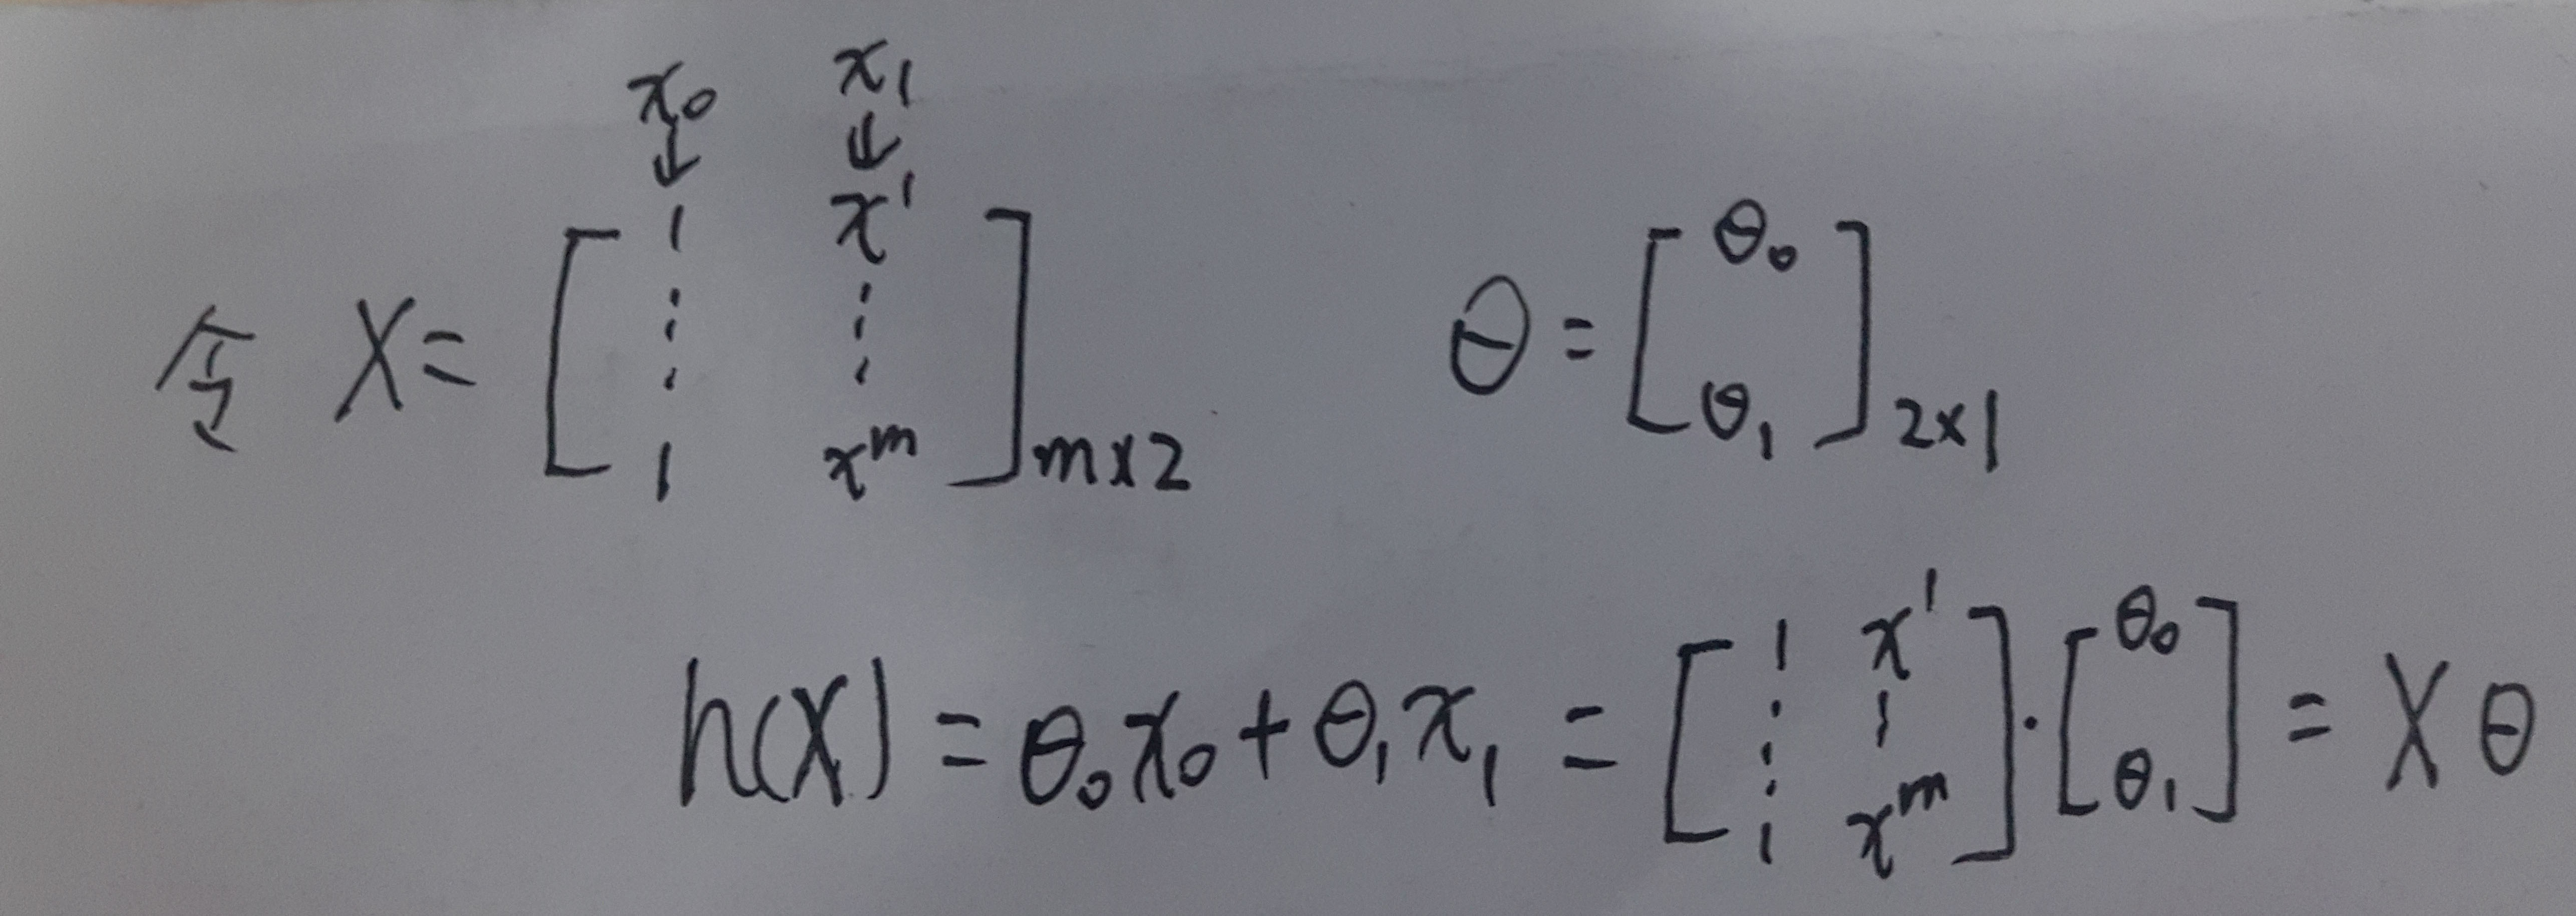 x₀ x₁
↓ ↓
令 X = [ 1 x¹ ⋮ ⋮ 1 xᵐ ]m×2 θ = [ θ₀ θ₁ ]2×1
h(X) = θ₀x₀ + θ₁x₁ = [ 1 x¹ ⋮ ⋮ 1 xᵐ ] · [ θ₀ θ₁ ] = Xθ